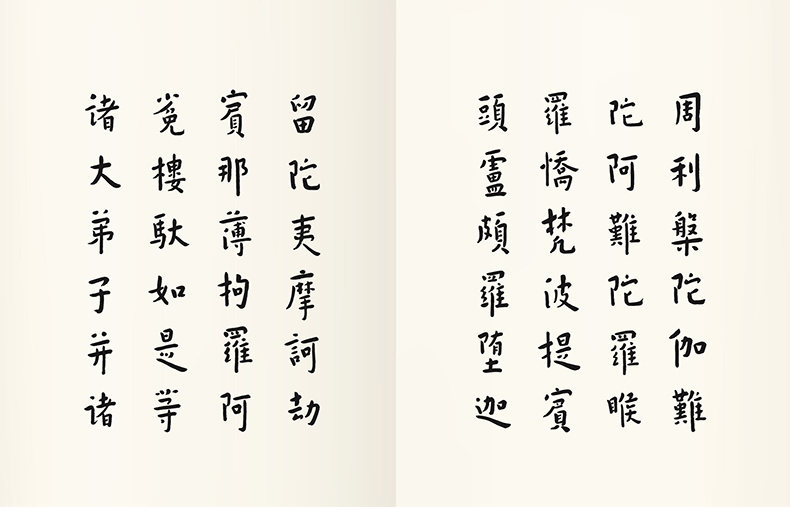 周利槃陀伽難
陀阿難陀羅睺
羅憍梵波提賓
頭盧頗羅堕迦
留陀夷摩訶劫
賓那薄拘羅阿
㝹樓馱如是等
诸大弟子并诸